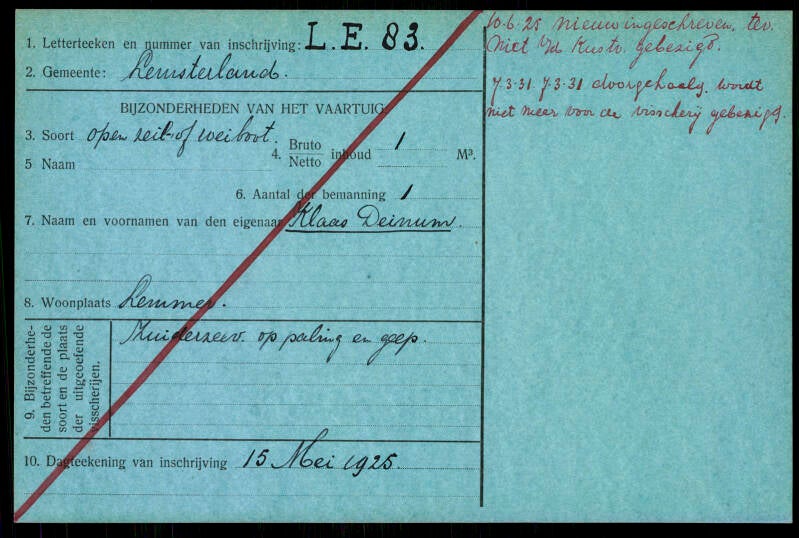 1. Letterteeken en nummer van inschrijving: L.E. 83.
2. Gemeente: Lemsterland.
BIJZONDERHEDEN VAN HET VAARTUIG
3. Soort open zeil of weiboot.
4. Bruto Netto inhoud 1 M³.
5 Naam
6. Aantal der bemanning 1
7. Naam en voornamen van den eigenaar Klaas Deinum.
8. Woonplaats Lemmer.
9. Bijzonderhe-
den betreffende de
soort en de plaats
der uitgeoefende
visscherijen.
Zuiderzeev. op paling en geep.
10. Dagteekening van inschrijving 15 Mei 1925.
10.6.25 nieuw ingeschreven, tev.
niet v/d Kustv. gebezigd.
7.3.31 7.3.31 doorgehaald, wordt
niet meer voor de visscherij gebezigd.